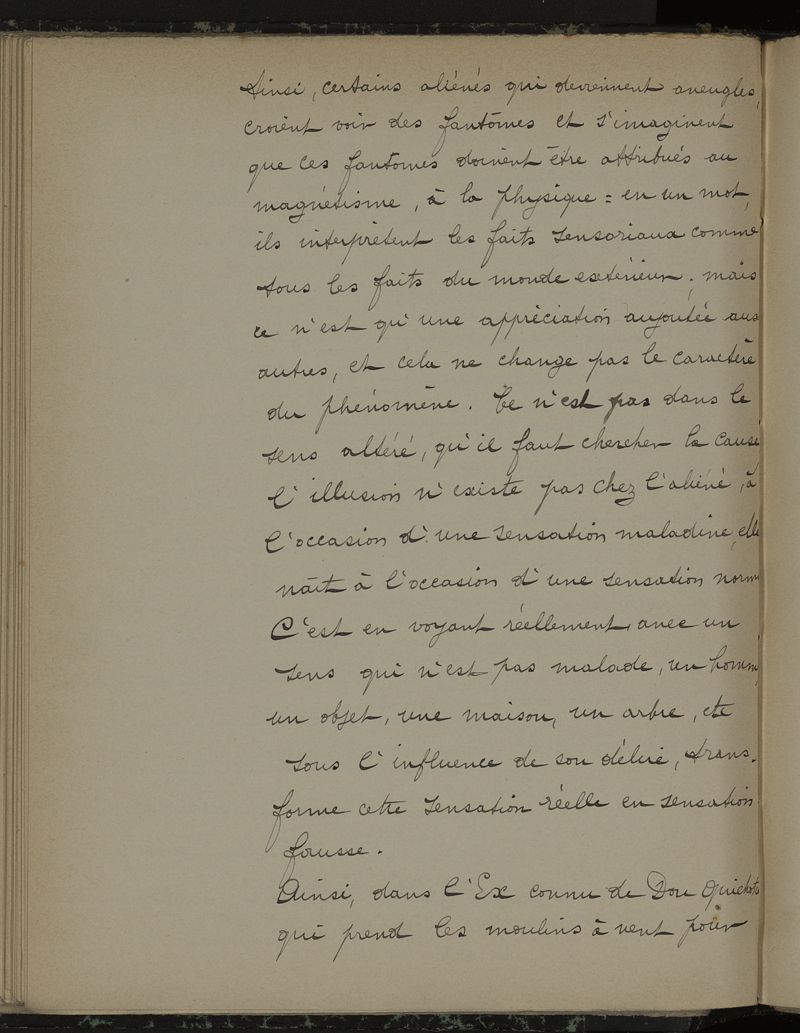 Ainsi, certains aliénés qui deviennent aveugles,
croient voir des fantômes et s'imaginent
que ces fantômes doivent être attribués au
magnétisme, à la physique : en un mot,
ils interprètent les faits sensoriaux comme
tous les faits du monde extérieur ; mais
ce n'est qu'une appréciation ajoutée aux
autres, et cela ne change pas le caractère
du phénomène. Ce n'est pas dans le
sens altéré, qu'il faut chercher la cause
l'illusion n'existe pas chez l'aliéné, à
l'occasion d'une sensation maladive, elle
naît à l'occasion d'une sensation norm
C'est en voyant réellement, avec un
sens qui n'est pas malade, un homm
un objet, une maison, un arbre, etc
sous l'influence de son délire, trans-
forme cette sensation réelle en sensation
fausse.
Ainsi, dans l'Ex connu de Don Quichotte
qui prend les moulins à vent pour